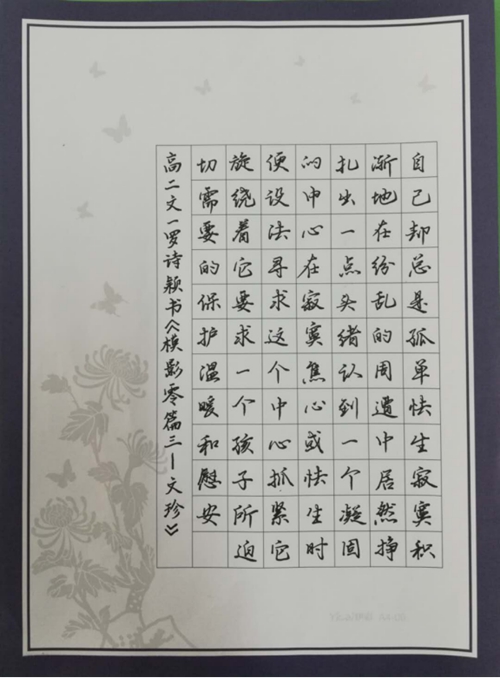 自己却总是孤单怯生寂寞积
渐地在纷乱的周遭中居然挣
扎出一点头绪认到一个凝固
的中心在寂寞焦心或怯生时
便设法寻求这个中心抓紧它
旋绕着它要求一个孩子所迫
切需要的保护温暖和慰安
高二文一罗诗颖书《模影零篇三—文珍》